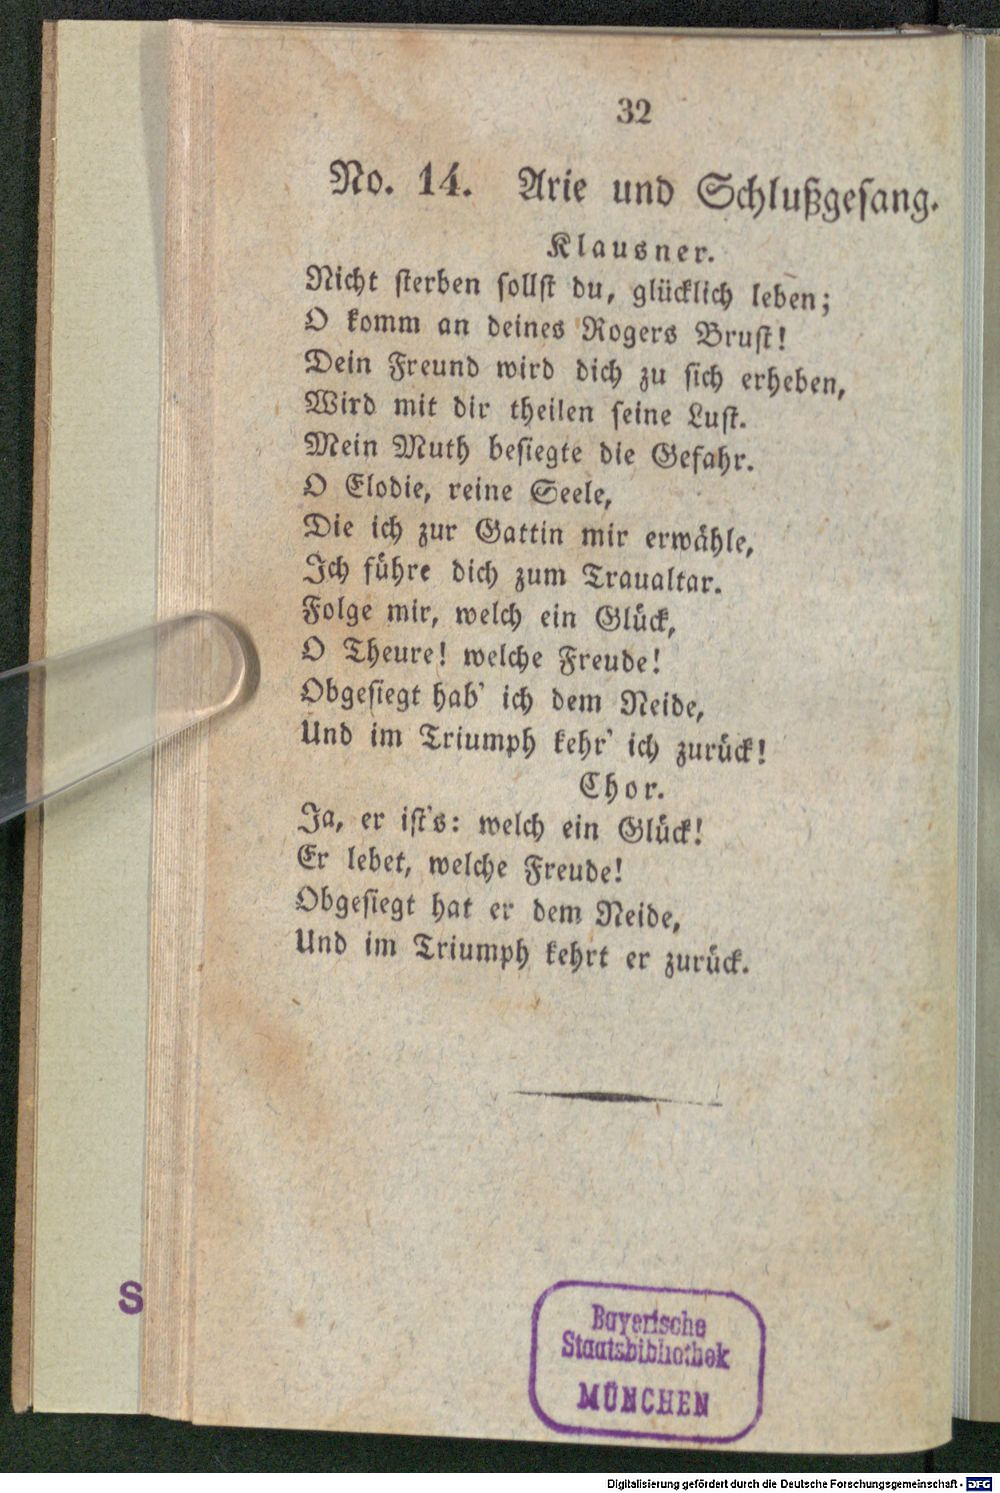 32
No. 14. Arie und Schlußgesang.
Klausner.
Nicht sterben sollst du, glücklich leben;
O komm an deines Rogers Brust!
Dein Freund wird dich zu sich erheben,
Wird mit dir theilen seine Lust.
Mein Muth besiegte die Gefahr.
O Elodie, reine Seele,
Die ich zur Gattin mir erwähle,
Ich führe dich zum Traualtar.
Folge mir, welch ein Glück,
O Theure! welche Freude!
Obgesiegt hab' ich dem Neide,
Und im Triumph kehr' ich zurück!
Chor.
Ja, er ist's: welch ein Glück!
Er lebet, welche Freude!
Obgesiegt hat er dem Neide,
Und im Triumph kehrt er zurück.
S
Bayerische
Staatsbibliothek
MÜNCHEN
Digitalisierung gefördert durch die Deutsche Forschungsgemeinschaft - DFG